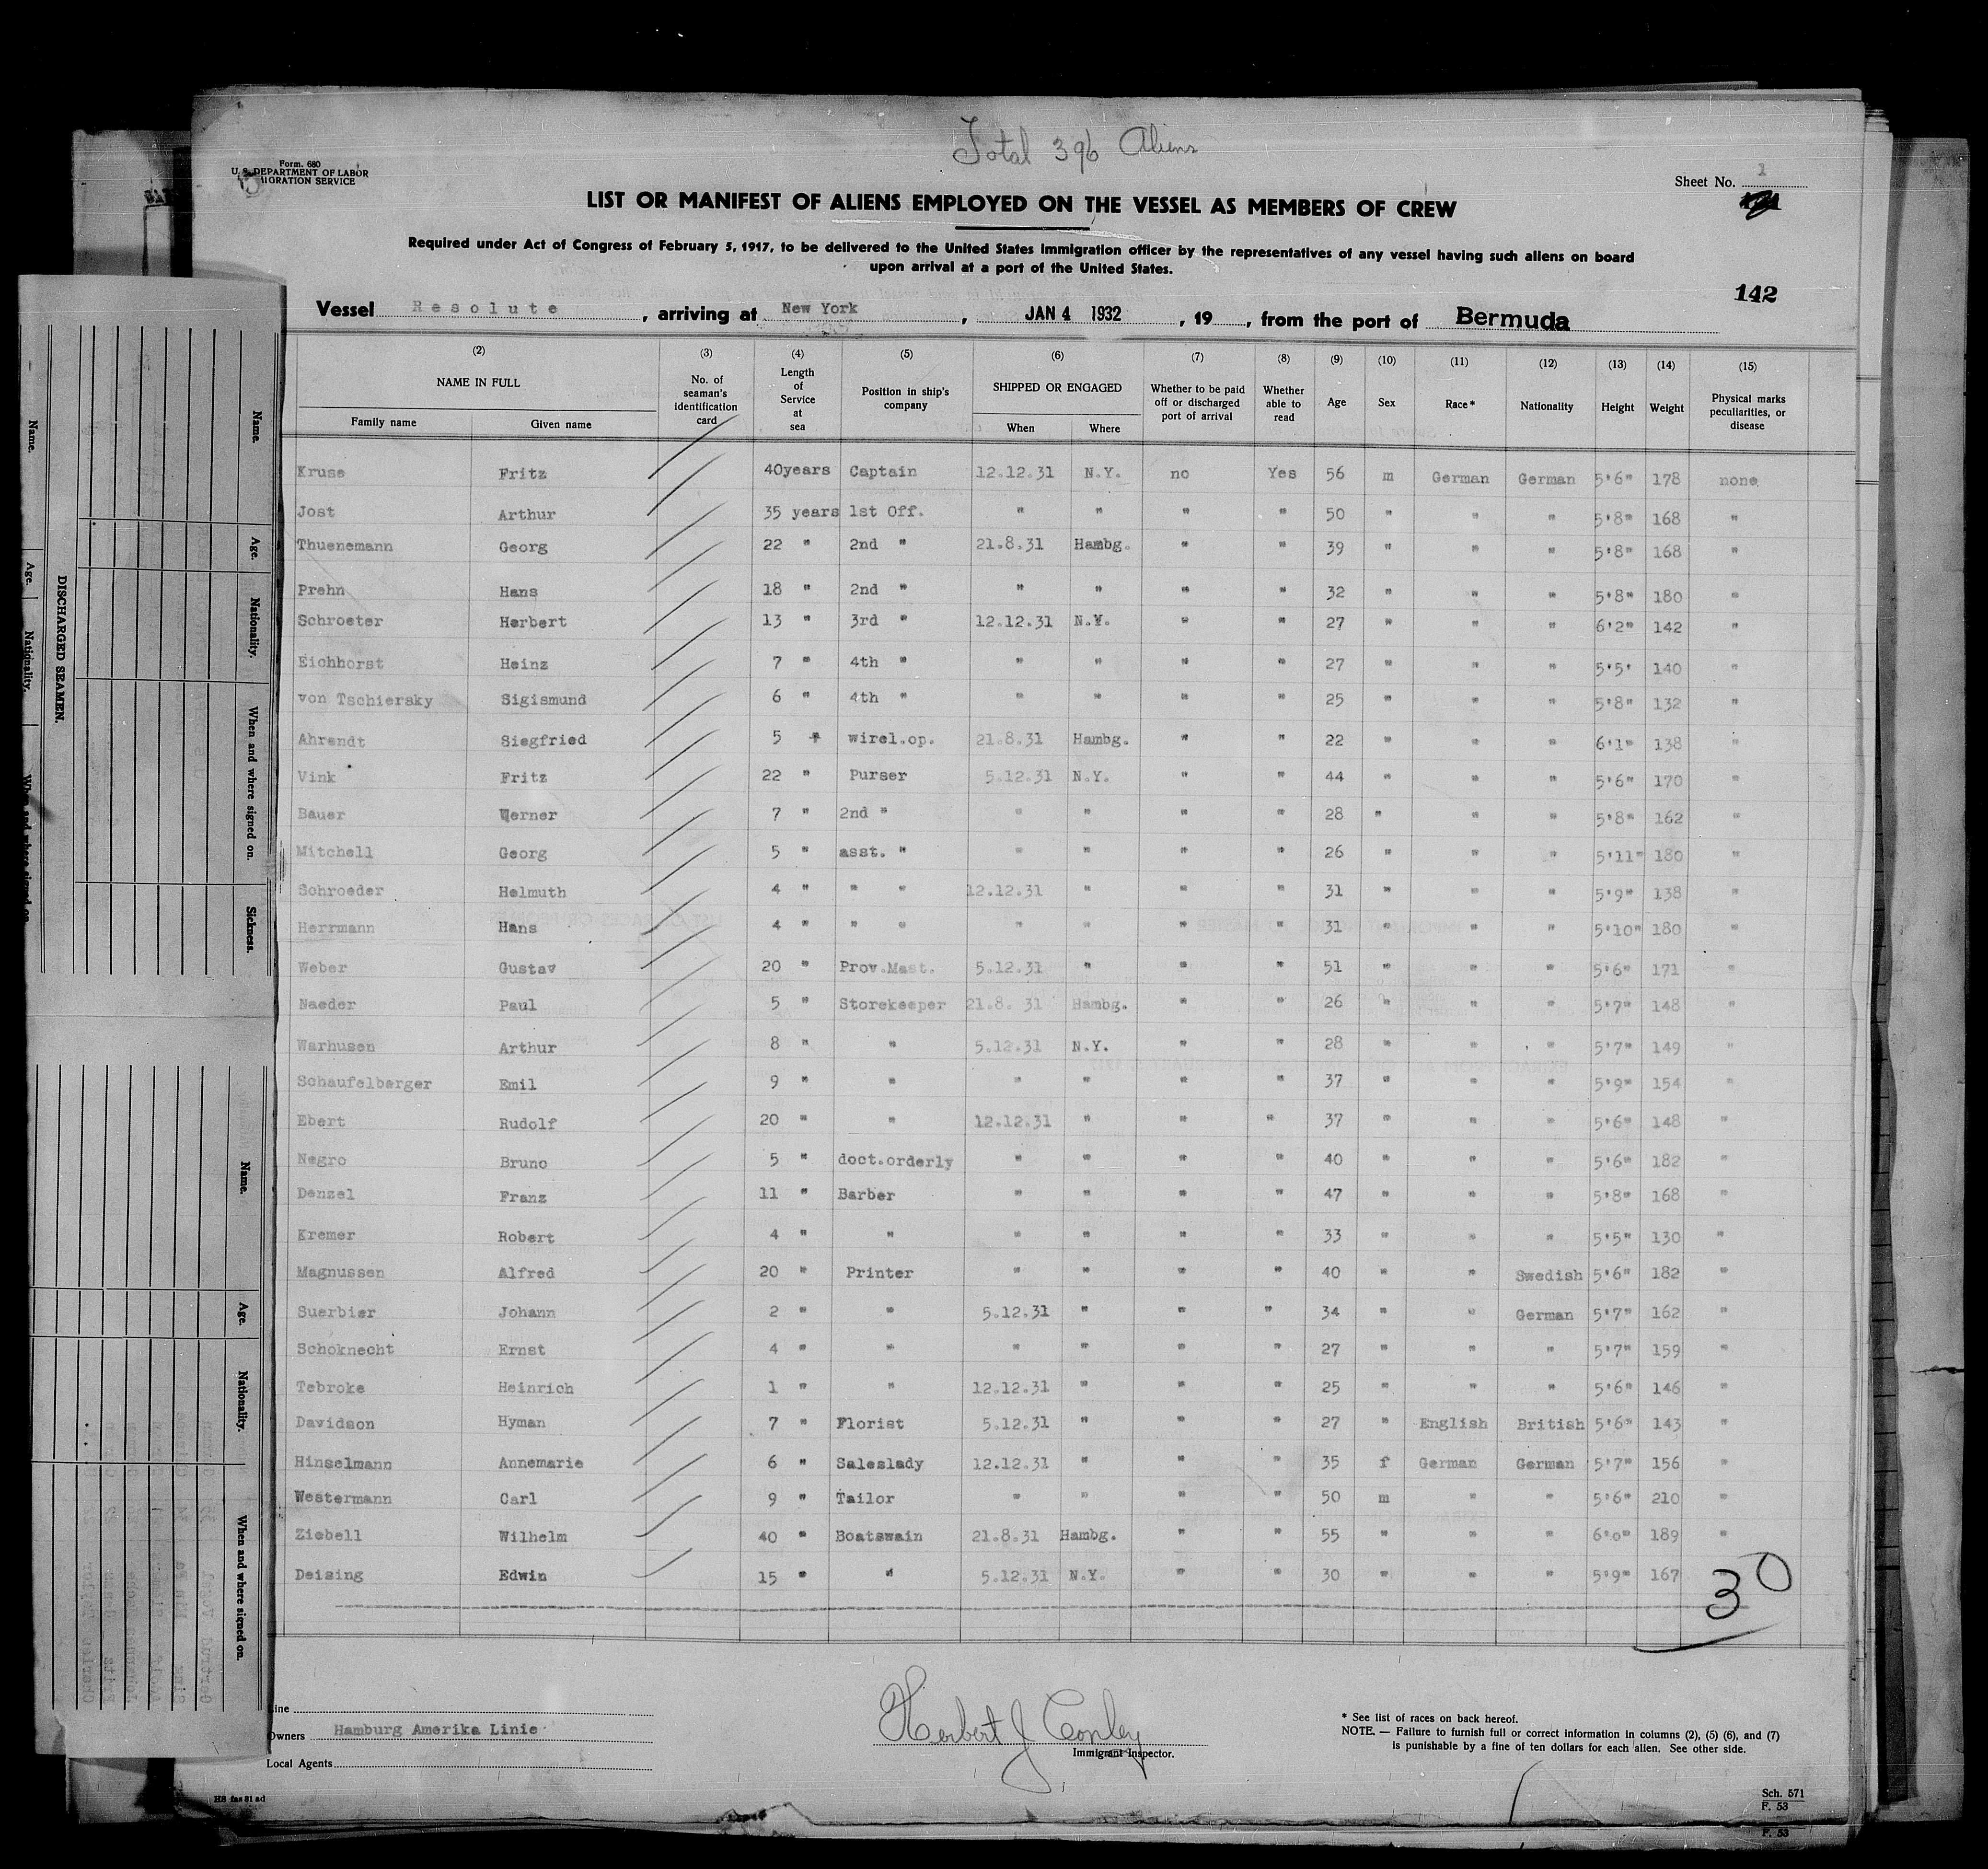 Total 396 Aliens
Form. 680
U. S. DEPARTMENT OF LABOR
IGRATION SERVICE
Sheet No. 1
LIST OR MANIFEST OF ALIENS EMPLOYED ON THE VESSEL AS MEMBERS OF CREW
Required under Act of Congress of February 5, 1917, to be delivered to the United States immigration officer by the representatives of any vessel having such aliens on board
upon arrival at a port of the United States.
142
Vessel Resolute, arriving at New York, JAN 4 1932, 19, from the port of Bermuda
(2) (3) (4) (5) (6) (7) (8) (9) (10) (11) (12) (13) (14) (15)
NAME IN FULL No. of seaman's identification card Length of Service at sea Position in ship's company SHIPPED OR ENGAGED Whether to be paid off or discharged port of arrival Whether able to read Age Sex Race* Nationality Height Weight Physical marks peculiarities, or disease
Family name Given name When Where
Kruse Fritz 40years Captain 12.12.31 N.Y. no Yes 56 m German German 5'6" 178 none
Jost Arthur 35 years 1st Off. " " " " 50 " " " 5'8" 168 "
Thuenemann Georg 22 " 2nd " 21.8.31 Hambg. " " 39 " " " 5'8" 168 "
Prehn Hans 18 " 2nd " " " " " 32 " " " 5'8" 180 "
Schroeter Herbert 13 " 3rd " 12.12.31 N.Y. " " 27 " " " 6'2" 142 "
Eichhorst Heinz 7 " 4th " " " " " 27 " " " 5'5' 140 "
von Tschiersky Sigismund 6 " 4th " " " " " 25 " " " 5'8" 132 "
Ahrendt Siegfried 5 " wirel.op. 21.8.31 Hambg. " " 22 " " " 6'1" 138 "
Vink Fritz 22 " Purser 5.12.31 N.Y. " " 44 " " " 5'6" 170 "
Bauer Werner 7 " 2nd " " " " " 28 " " " 5'8" 162 "
Mitchell Georg 5 " asst. " " " " " 26 " " " 5'11" 180 "
Schroeder Helmuth 4 " " " 12.12.31 " " " 31 " " " 5'9" 138 "
Herrmann Hans 4 " " " " " " " 31 " " " 5'10" 180 "
Weber Gustav 20 " Prov.Mast. 5.12.31 " " " 51 " " " 5'6" 171 "
Naeder Paul 5 " Storekeeper 21.8. 31 Hambg. " " 26 " " " 5'7" 148 "
Warhusen Arthur 8 " " 5.12.31 N.Y. " " 28 " " " 5'7" 149 "
Schaufelberger Emil 9 " " " " " " 37 " " " 5'9" 154 "
Ebert Rudolf 20 " " 12.12.31 " " " 37 " " " 5'6" 148 "
Negro Bruno 5 " doct.orderly " " " " 40 " " " 5'6" 182 "
Denzel Franz 11 " Barber " " " " 47 " " " 5'8" 168 "
Kremer Robert 4 " " " " " " 33 " " " 5'5" 130 "
Magnussen Alfred 20 " Printer " " " " 40 " " Swedish 5'6" 182 "
Suerbier Johann 2 " " 5.12.31 " " " 34 " " German 5'7" 162 "
Schoknecht Ernst 4 " " " " " " 27 " " " 5'7" 159 "
Tebroke Heinrich 1 " " 12.12.31 " " " 25 " " " 5'6" 146 "
Davidson Hyman 7 " Florist 5.12.31 " " " 27 " English British 5'6" 143 "
Hinselmann Annemarie 6 " Saleslady 12.12.31 " " " 35 f German German 5'7" 156 "
Westermann Carl 9 " Tailor " " " " 50 m " " 5'6" 210 "
Ziebell Wilhelm 40 " Boatswain 21.8.31 Hambg. " " 55 " " " 6'0" 189 "
Deising Edwin 15 " " 5.12.31 N.Y. " " 30 " " " 5'9" 167
30
Line
Owners Hamburg Amerika Linie
Local Agents
Herbert J Conley
Immigrant Inspector.
* See list of races on back hereof.
NOTE. — Failure to furnish full or correct information in columns (2), (5) (6), and (7)
is punishable by a fine of ten dollars for each alien. See other side.
Sch. 571
F. 53
F. 53
DISCHARGED SEAMEN.
Name. Age. Nationality. When and where signed on. Sickness.
Name. Age. Nationality.
Name. Age. Nationality. When and where signed on.